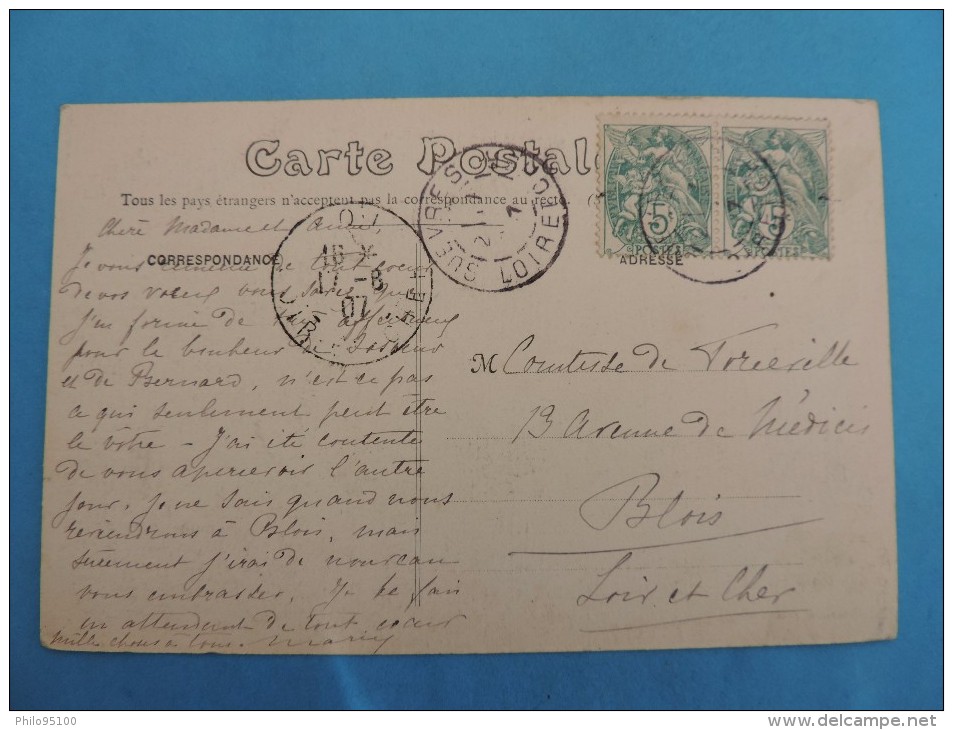 Carte Postale
Tous les pays étrangers n'acceptent pas la correspondance au recto.
CORRESPONDANCE
ADRESSE
SUÈVRES
LOIR
07
5c
5c
POSTES
POSTES
Chère Madame
Je vous remercie de tout coeur
de vos voeux vous savez que
J'en forme de
pour le bonheur de
et de Bernard, n'est ce pas
ce qui seulement peut être
le vôtre – J'ai été contente
de vous apercevoir l'autre
jour. Je ne sais quand nous
reviendrons à Blois, mais
sûrement j'irai de nouveau
vous embrasser. Je le fais
en attendant de tout coeur
Mille choses à tous.
M Comtesse de
13 Avenue de Médicis
Blois
Loir et Cher
Philo95100
www.delcampe.net